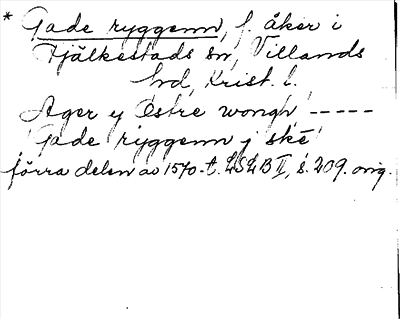 * Gade ryggenn, f. åker i
Fjälkestads sn, Villands
hd, Krist. l.
Ager y Østre wongh -----
Gade ryggenn j skē
förra delen av 1570-t. LSLB II, s. 209. orig.